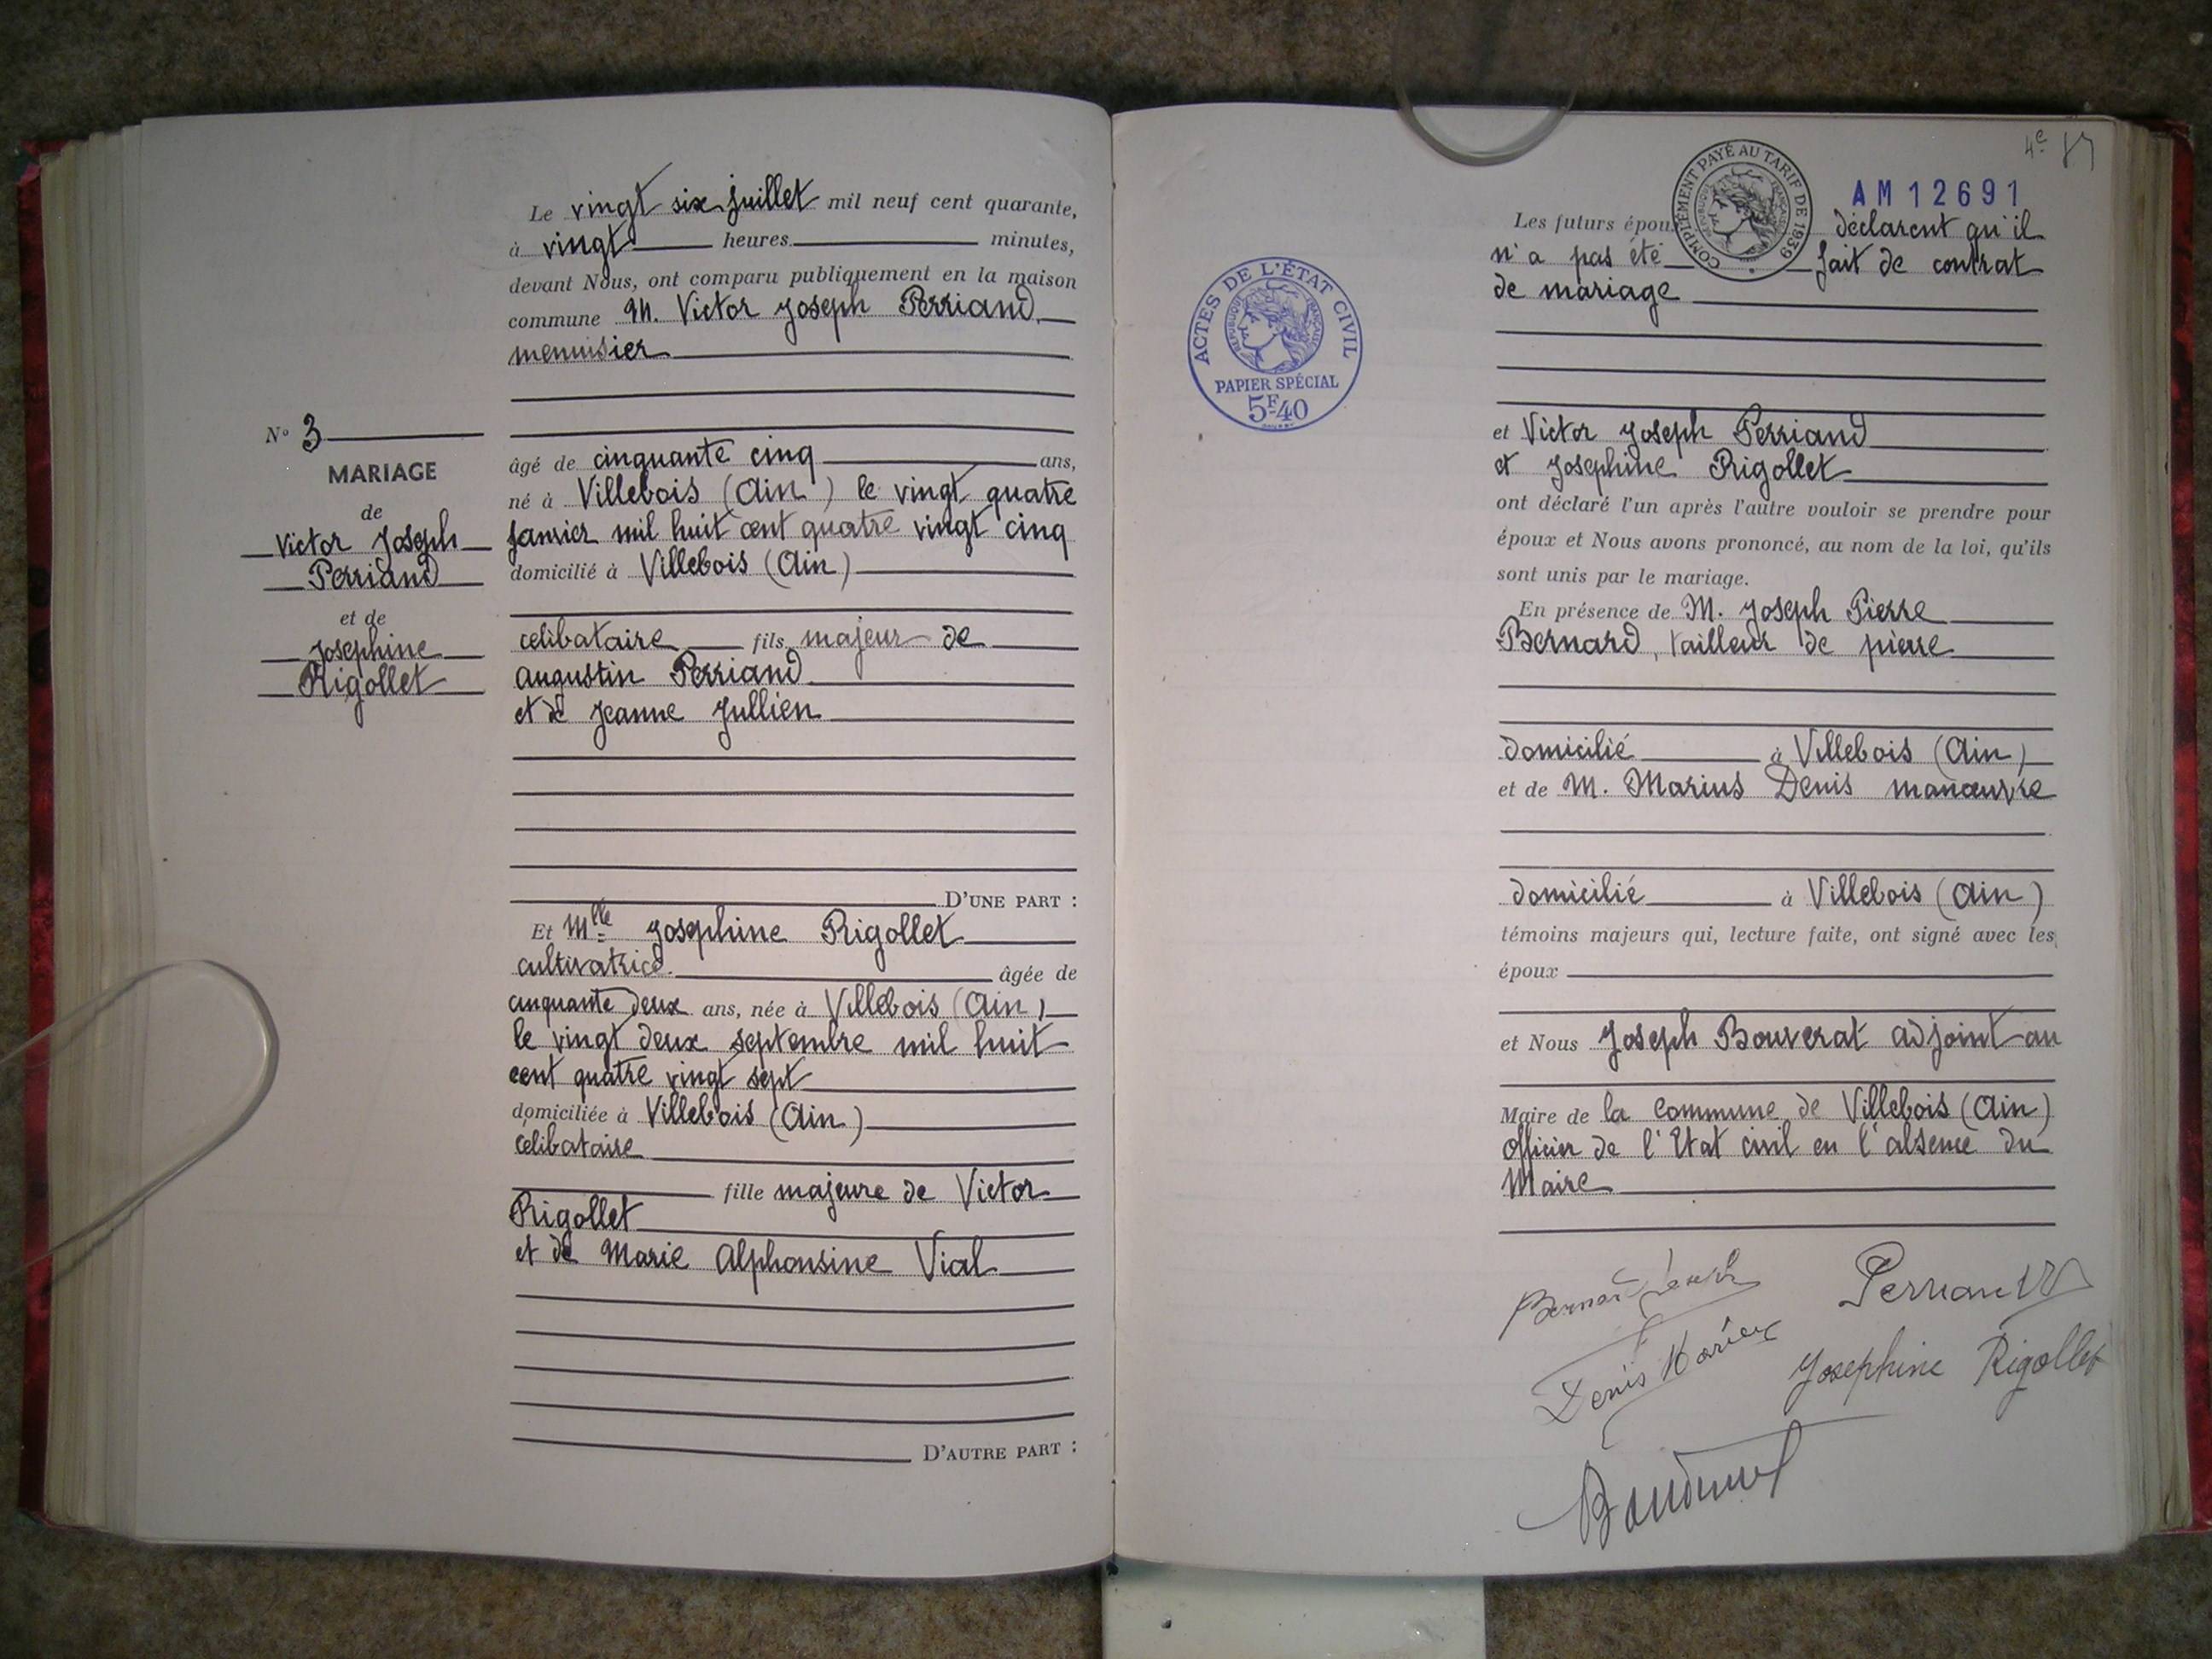 N° 3
MARIAGE
de
Victor Joseph
Perriand
et de
Josephine
Rigollet
Le vingt six juillet mil neuf cent quarante,
à vingt heures minutes,
devant Nous, ont comparu publiquement en la maison
commune M. Victor Joseph Perriand
menuisier
âgé de cinquante cinq ans,
né à Villebois (Ain) le vingt quatre
Janvier mil huit cent quatre vingt cinq
domicilié à Villebois (Ain)
celibataire fils majeur de
Augustin Perriand
et de Jeanne Jullien
D'UNE PART :
Et Mlle Josephine Rigollet
cultivatrice âgée de
cinquante deux ans, née à Villebois (Ain)
le vingt deux septembre mil huit
cent quatre vingt sept
domiciliée à Villebois (Ain)
célibataire
fille majeure de Victor
Rigollet
et de Marie Alphonsine Vial
D'AUTRE PART :
4e
COMPLÉMENT PAYÉ AU TARIF DE 1939
AM12691
ACTES DE L'ÉTAT CIVIL
RÉPUBLIQUE FRANÇAISE
PAPIER SPÉCIAL
5F40
Les futurs épou déclarent qu'il
n'a pas été fait de contrat
de mariage
et Victor Joseph Perriand
et Josephine Rigollet
ont déclaré l'un après l'autre vouloir se prendre pour
époux et Nous avons prononcé, au nom de la loi, qu'ils
sont unis par le mariage.
En présence de M. Joseph Pierre
Bernard, tailleur de pierre
domicilié à Villebois (Ain)
et de M. Marius Denis manœuvre
domicilié à Villebois (Ain)
témoins majeurs qui, lecture faite, ont signé avec les
époux
et Nous Joseph Bouverat adjoint au
Maire de la commune de Villebois (Ain)
Officier de l'Etat civil en l'absence du
Maire
Bernard Joseph
Perriand
Denis Marius
Josephine Rigollet